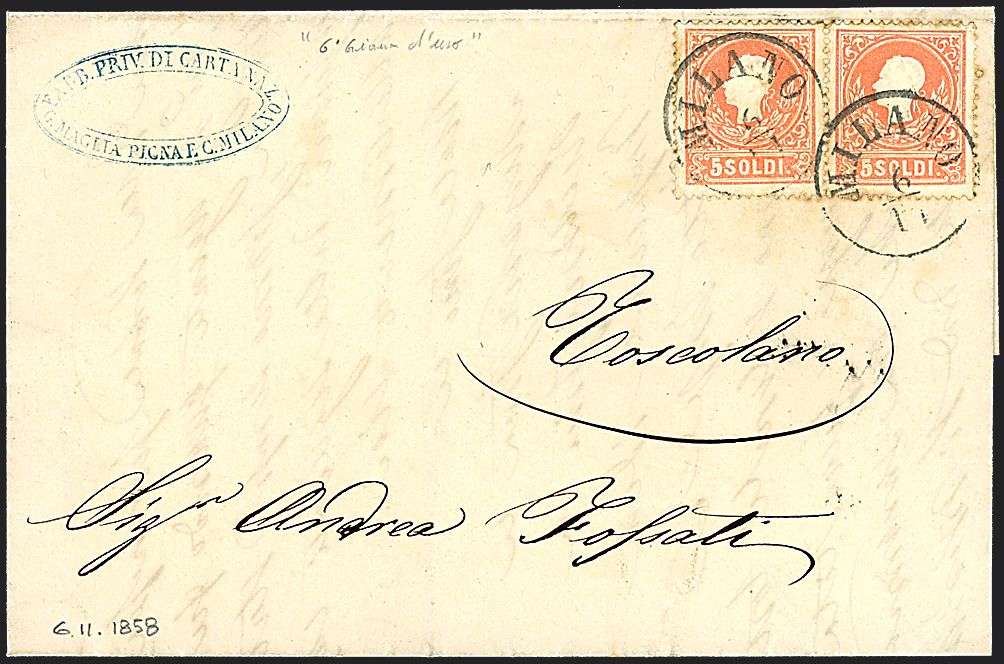 FABB. PRIV. DI CARTA VAL. O
G. MAGLIA PIGNA E C. MILANO
"6° d'uso"
MILANO
6/11
5 SOLDI.
MILANO
6/11
5 SOLDI.
Toscolano
Sigr Andrea Fossati
6.11.1858